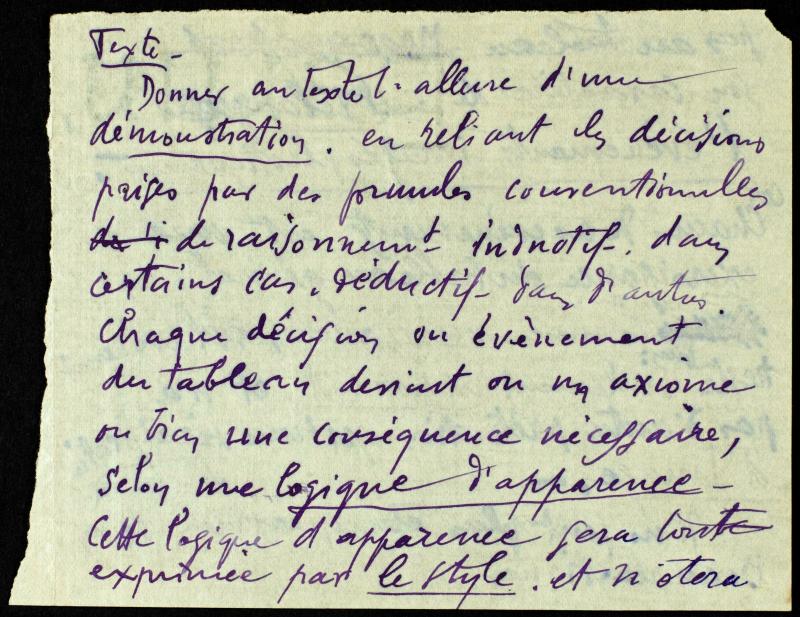 Texte –
Donner au texte l'allure d'une
démonstration. en reliant les décisions
prises par des formules conventionnelles
de raisonnement inductif. dans
certains cas, déductif – dans d'autres.
Chaque décision ou évènement
du tableau devient ou un axiome
ou bien une conséquence nécessaire,
selon une logique d'apparence –
Cette logique d'apparence sera toute
exprimée par le style. et n'otera